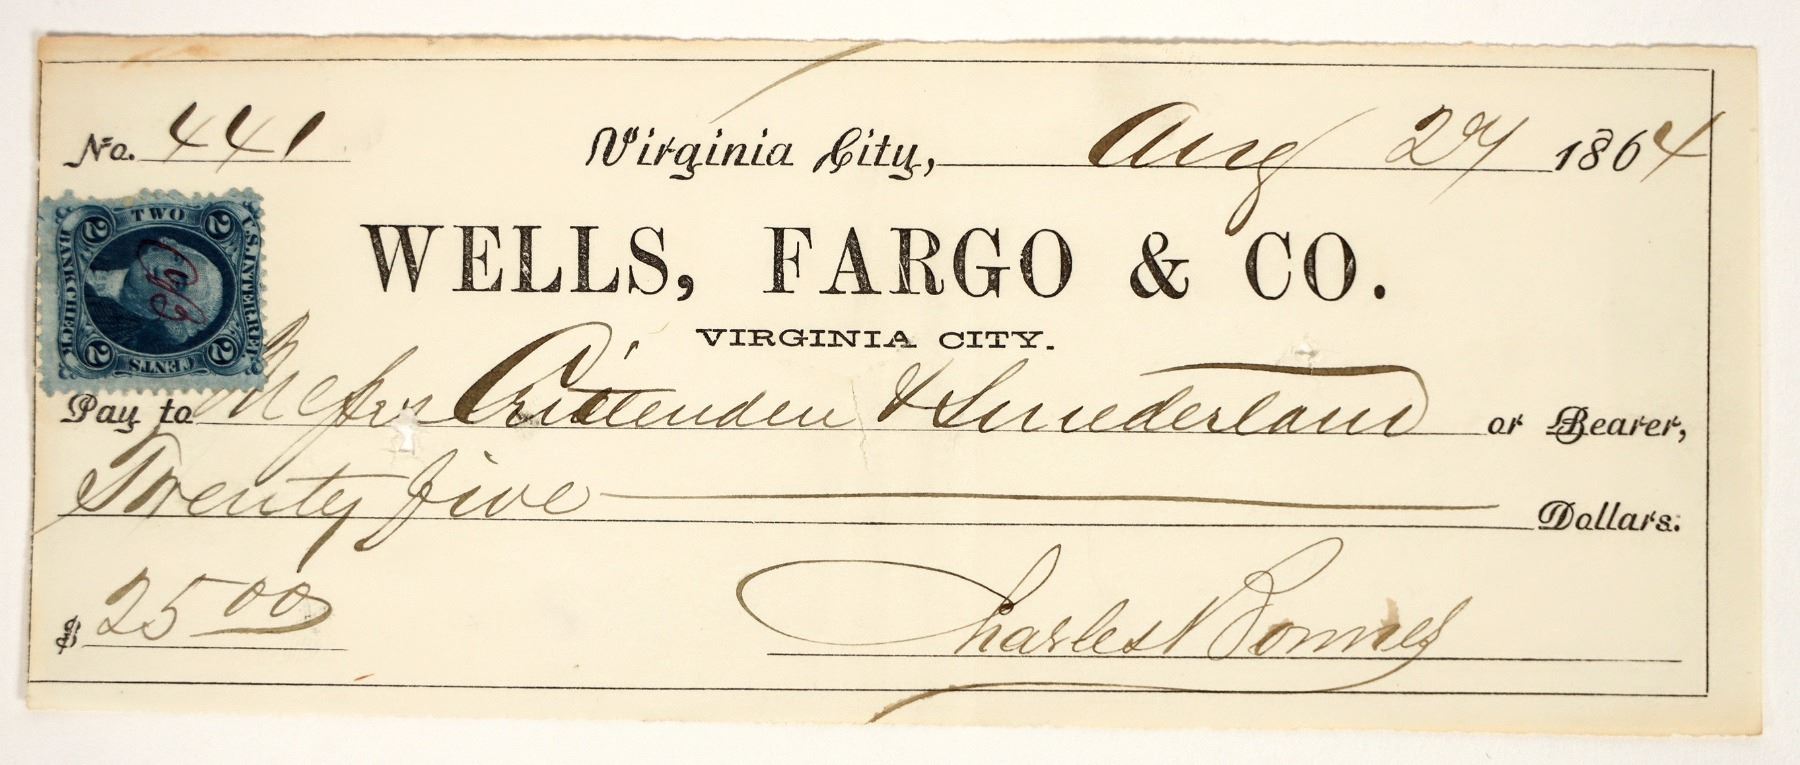 No. 441 Virginia City, Aug 27 1864
TWO
2 2
U.S. INTER. REV.
BANK CHECK
2 2
CENTS
WELLS, FARGO & CO.
VIRGINIA CITY.
Pay to Messrs Crittenden & Sunderland or Bearer,
Twenty five Dollars.
$ 25 00
Charles Bonner